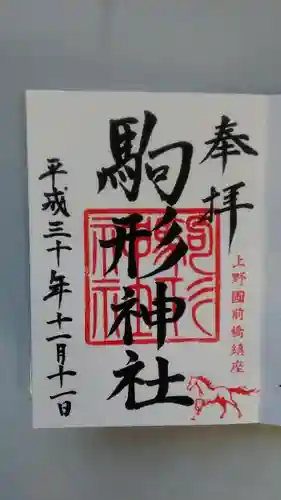 奉拝
上野國前橋鎮座
駒形神社
駒形神社
平成三十年十一月十一日